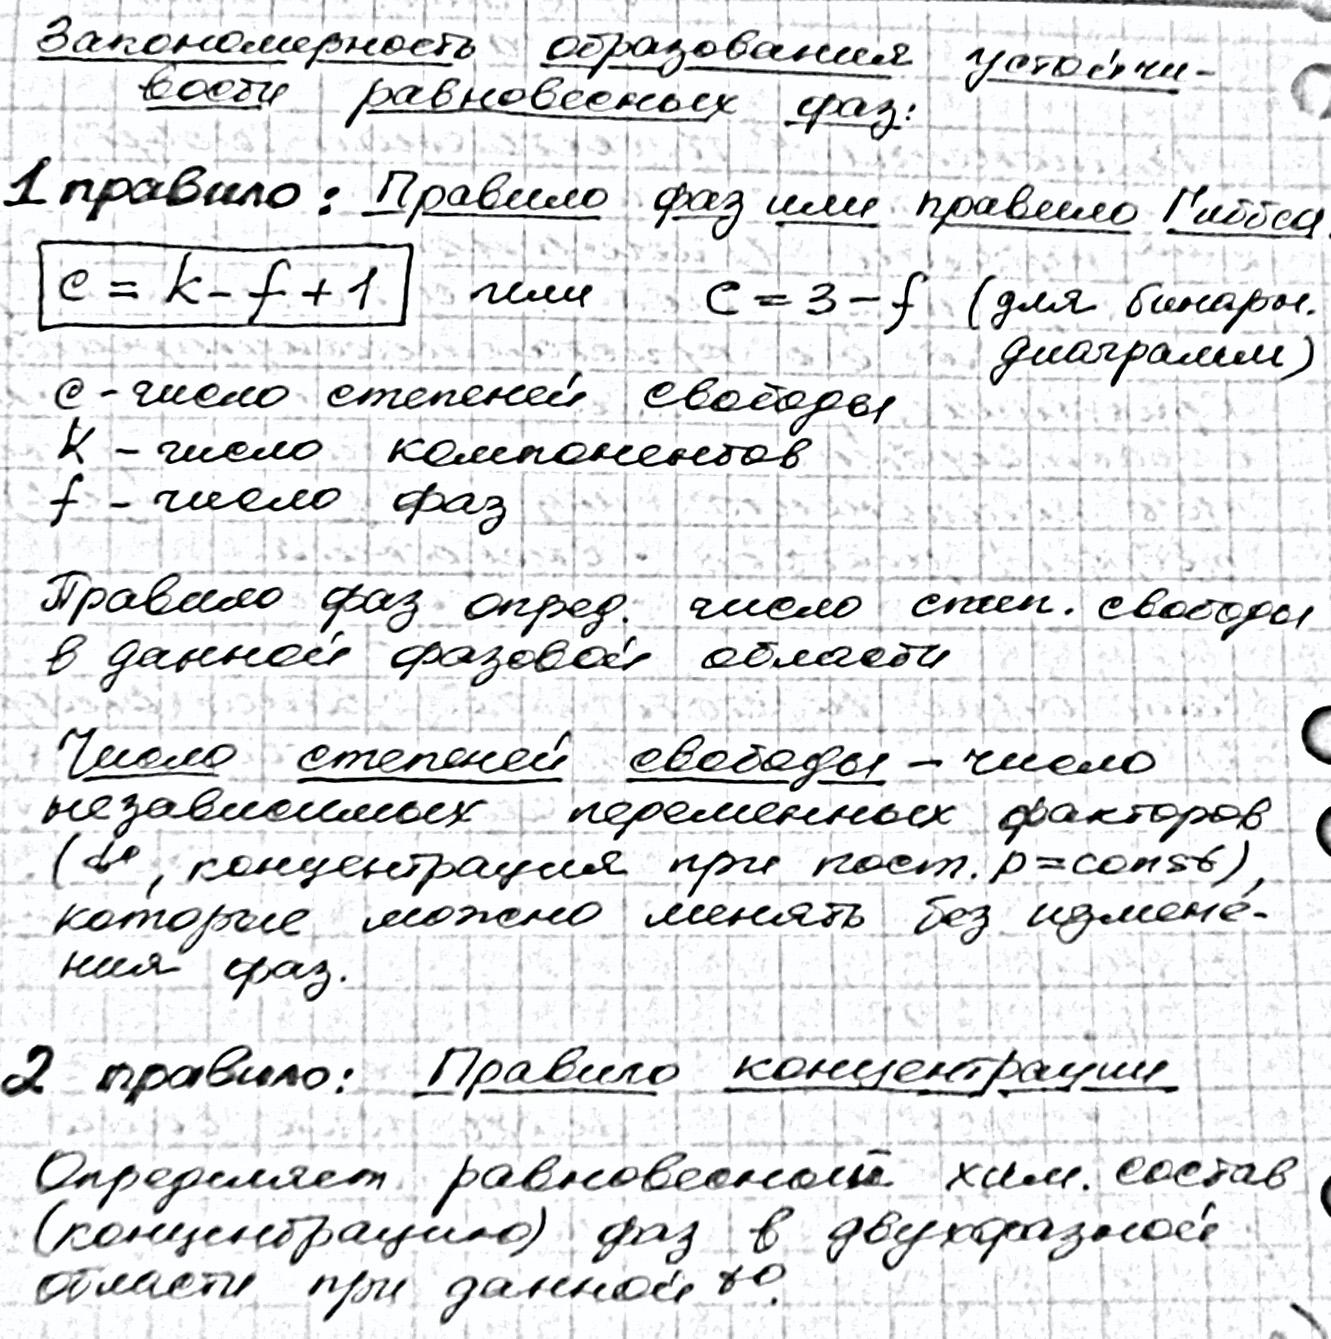 Закономерность образования устойчи-
вости равновесных фаз:
1 правило: Правило фаз или правило Гиббса.
c = k - f + 1 или c = 3 - f (для бинарн.
диаграмм)
c - число степеней свободы
k - число компонентов
f - число фаз
Правило фаз опред. число степ. свободы
в данной фазовой области
Число степеней свободы - число
независимых переменных факторов
(t°, концентрация при пост. p = const),
которые можно менять без измене-
ния фаз.
2 правило: Правило концентрации
Определяет равновесный хим. состав
(концентрацию) фаз в двухфазной
области при данной t°.